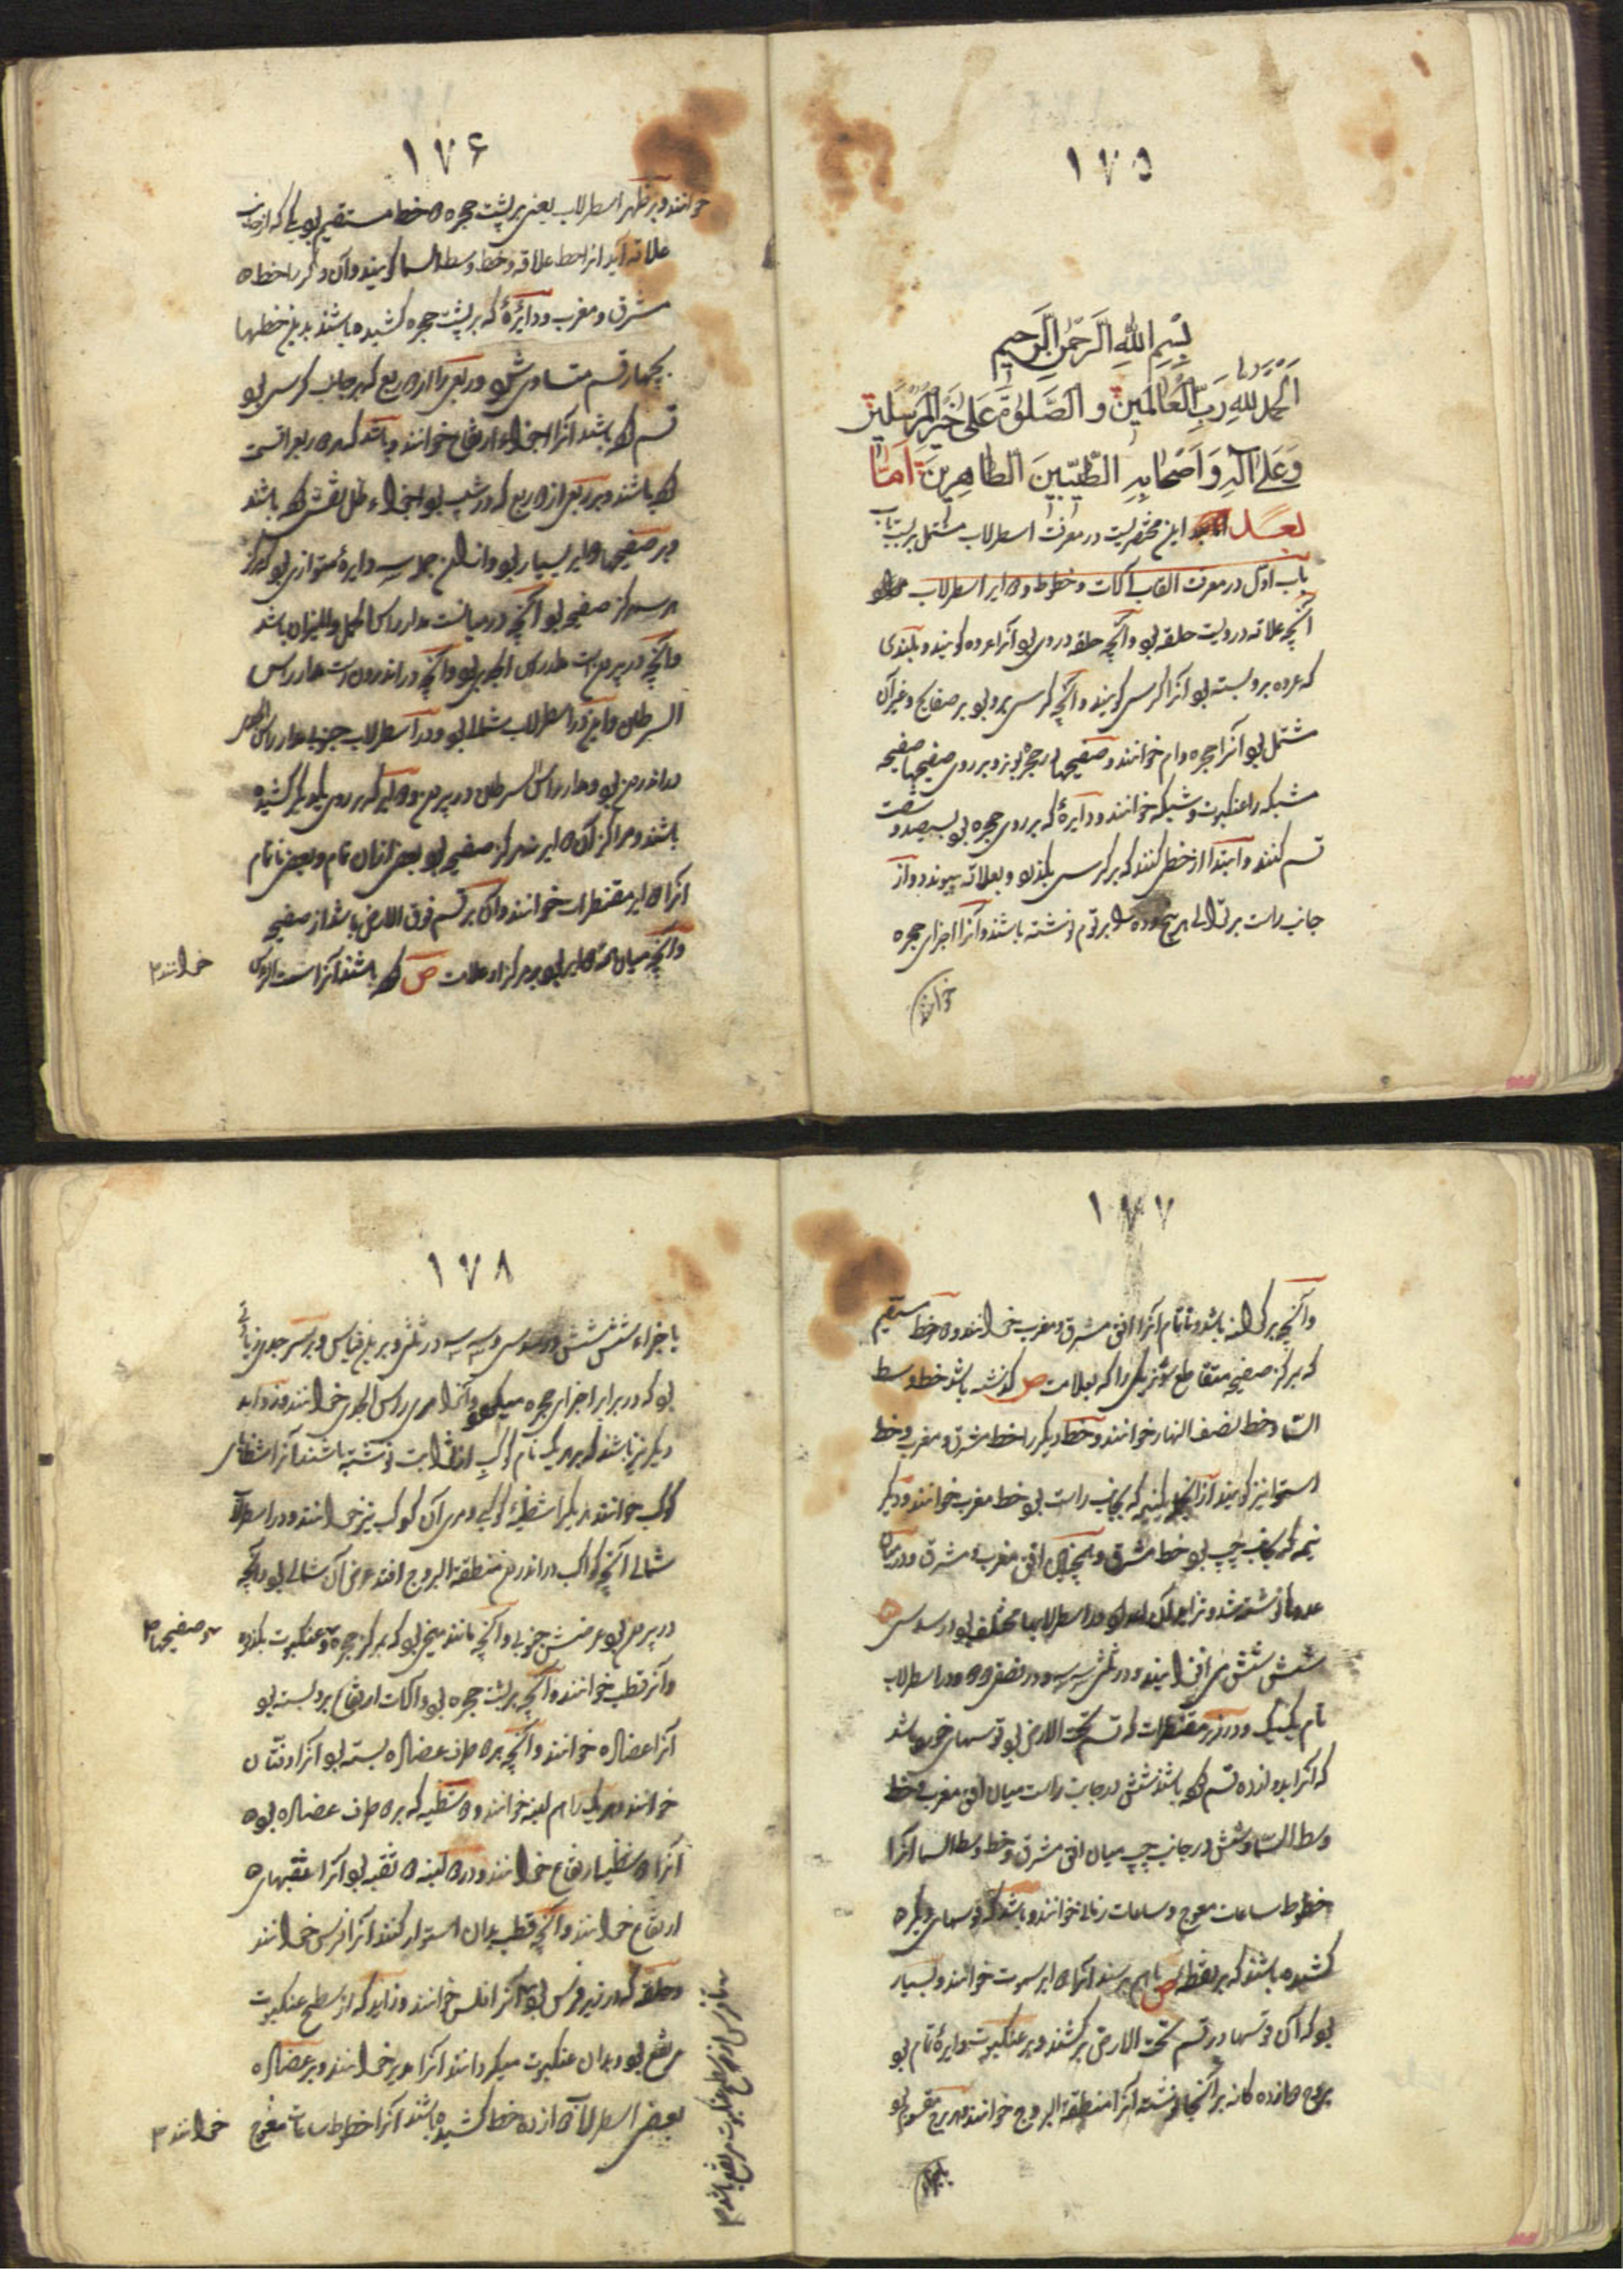 ١٧٥
بسم الله الرحمن الرحيم
الحمد لله رب العالمين و الصلوة على خير المرسلين
وعلى آله و اصحابه الطيبين الطاهرين اما
بعد اين مختصريست در معرفت اسطرلاب مشتمل بر بيست باب
باب اول در معرفت القاب آلات و خطوط و دواير اسطرلاب
آنچه علاقه درويست حلقه بود و آنچه حلقه در وى بود آنرا عروه كويند و بلندى
كه عروه برو بسته بود آنرا كرسى كويند و آنچه كرسى برو بود بر صفايح و غير آن
مشتمل بود آنرا حجره و ام خوانند و صفيحها در حجره بوند و بر روى صفيحها صفيحه
مشبكه را عنكبوت و شبكه خوانند و دايرۀ كه بر روى حجره بود بسيصد و شصت
قسم كنند و ابتدا از خطى كنند كه بر كرسى بكذرد و بعلاقه پيوندد و از
جانب راست بر توالى هر پنج و ده را برقم نوشته باشند و آنرا اجزاى حجره
خوانند
١٧۶
خوانند و بر ظهر اسطرلاب يعنى بر پشت حجره دو خط مستقيم بود يكى كه از جانب
علاقه آيد آنرا خط علاقه و خط وسط السما كويند و آن دكر را خط
مشرق و مغرب و دايرۀ كه بر پشت حجره كشيده باشند بدين خطها
بچهار قسم متساوى شود و ربعى را از دو ربع كه بر جانب كرسى بود
قسم كرده باشند آنرا اجزاء ارتفاع خوانند و باشد كه هر دو ربع را قسمت
كرده باشند و بر ربعى از دو ربع كه در شيب بود اجزاء ظل نقش كرده باشند
و بر صفيحها دواير بسيار بود و از آن جمله سه دايرۀ متوازى بود كه مركز
هر سه مركز صفيحه بود آنچه در ميانست مدار راس الحمل و الميزان باشد
و آنچه در بيرونست مدار راس الجدى بود و آنچه در اندرونست مدار راس
السرطان و اين در اسطرلاب شمالى بود و در اسطرلاب جنوبى مدار راس الجدى
در اندرون بود و مدار راس السرطان در بيرون و دواير كه بر روى يكديكر كشيده
باشند و مراكز آن دواير نه مركز صفيحه بود بعضى از آن تمام و بعضى ناتمام
آنرا دواير مقنطرات خوانند و آن بر قسم فوق الارض باشد از صفيحه
و آنچه ميان همه دواير بود و بر مركز او علامت ص كرده باشند آنرا سمت الراس
خوانند
١٧٧
و آنچه بر كرانه باشد و ناتمام آنرا افق مشرق و مغرب خوانند و دو خط مستقيم
كه بر مركز صفيحه متقاطع شوند يكى را كه بعلامت ص كذشته باشد خط وسط
السما و خط نصف النهار خوانند و خط ديكر را خط مشرق و مغرب و خط
استوا نيز كويند از آنجا يك نيمه كه بجانب راست بود خط مغرب خوانند و ديكر
نيمه كه بجانب چپ بود خط مشرق و همچنين افق مغرب و مشرق و در ميان
عددها نوشته شد و تزايد آن اعداد در اسطرلابها مختلف بود در سدسى
شش شش مى‌افزايند و در ثلثى سه سه و در نصفى دو دو و در اسطرلاب
تام يك يك و در زير مقنطرات كه قسم تحت الارض بود قوسهاى خورد باشد
كه آنرا بدوازده قسم كرده باشند شش در جانب راست ميان افق مغرب و خط
وسط السما و شش در جانب چپ ميان افق مشرق و خط وسط السما آنرا
خطوط ساعات معوج و ساعات زمانى خوانند و باشد كه قوسهاى ديكر
كشيده باشند كه بر نقطه ص با هم رسند آنرا دواير سموت خوانند و بسيار
بود كه آن قوسها در قسم تحت الارض بر كشند و بر عنكبوت دايرۀ تام بود
بروج دوازده كانه بر آنجا نوشته آنرا منطقة البروج خوانند و هر برج مقسوم بود
باجزاء
١٧٨
باجزاء شش شش در سدسى و سه سه در ثلثى و برين قياس و بر سر جدى زيادتى
بود كه در برابر اجزاى حجره ميكردد و آنرا مرى راس الجدى خوانند و زوايد
ديكر نيز باشند كه بر هر يك نام كوكبى از ثوابت نوشته باشند آنرا شظاياى
كواكب خوانند هر يكى را شظيۀ كوكبى و مرى آن كوكب نيز خوانند و در اسطرلاب
شمالى آنچه كواكب در اندرون منطقة البروج افتد عرض آن شمالى بود و آنچه
در بيرون بود عرضش جنوبى و آنچه مانند ميخى بود كه بر مركز حجره و عنكبوت بكذرد
و صفيحها
و آنرا قطب خوانند و آنچه بر پشت حجره بود و آلات ارتفاع برو بسته بود
آنرا عضاده خوانند و آنچه بر دو طرف عضاده بسته بود آنرا دفتان
خوانند و هر يك را هم لبنه خوانند و دو شظيه كه بر دو طرف عضاده بود
آنرا دو شظيه ارتفاع خوانند و در دو لبنه دو ثقبه بود آنرا ثقبهاى
ارتفاع خوانند و آنچه قطب بدان استوار كنند آنرا فرس خوانند
و حلقه كه در زير فرس بود آنرا فلس خوانند و زايد كه از سطح عنكبوت
مرتفع بود و بدان عنكبوت ميكردانند آنرا مدير خوانند و بر عضاده
بعضى اسطرلابات دوازده خط كشيده باشند آنرا خطوط ساعات معوج
خوانند
تا فرس از سطح عنكبوت مرتفع باشد